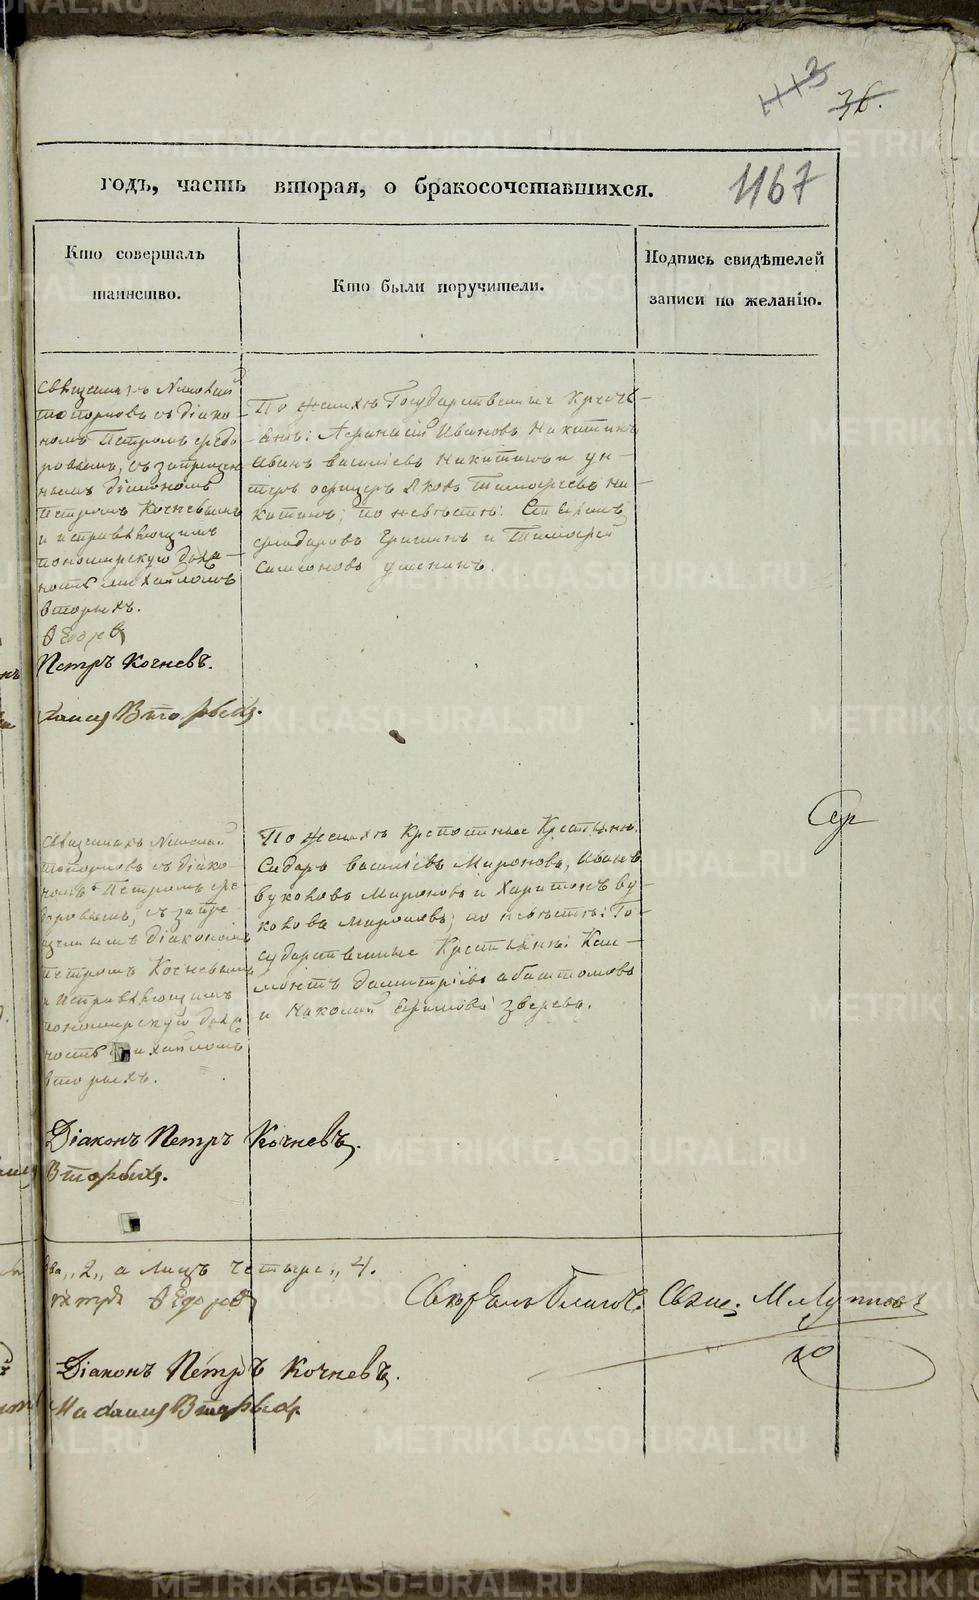 1113
36.
годъ, часть вторая, о бракосочетавшихся.
1167
Кто совершалъ
таинство.
Кто были поручители.
Подпись свидѣтелей
записи по желанію.
Священникъ Николай
Топорковъ съ діако-
номъ Петромъ Ѳедо
ровымъ, съ запрещен
нымъ діакономъ
Петромъ Кочневымъ
и исправляющимъ
пономарскую долж-
ность Михайломъ
Вторыхъ.
Ѳедоровъ
Петръ Кочневъ.
Вторыхъ.
По женихѣ Государственные Кресть-
яне: Аѳанасій Ивановъ Никитинъ
Иванъ Василіевъ Никитинъ и ун-
теръ офицеръ Яковъ Тимоѳеевъ Ни-
китинъ; по невѣстѣ:
Ѳедоровъ и Тимоѳей
Симеоновъ
Священникъ Николай
Топорковъ съ діако-
номъ Петромъ Ѳе
доровымъ, съ запре
щеннымъ діакономъ
Петромъ Кочневымъ
и исправляющимъ
пономарскую долж
ность Михайломъ
Вторыхъ.
По женихѣ крепостные Крестьяне:
Сидоръ Василіевъ Мироновъ, Иванъ
Вуколовъ Мироновъ и Харитонъ Ву-
коловъ Мироновъ; по невѣстѣ: Го-
сударственные Крестьяне: Кли-
ментъ Димитріевъ
и Николай Ефимовъ Зверевъ.
Діаконъ Петръ Кочневъ.
Вторыхъ.
два „2„ а лицъ четыре „4.
Петръ Ѳедоровъ
Діаконъ Петръ Кочневъ.
Вторыхъ